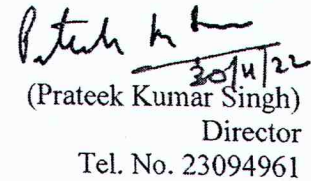 30/11/22
(Prateek Kumar Singh)
Director
Tel. No. 23094961